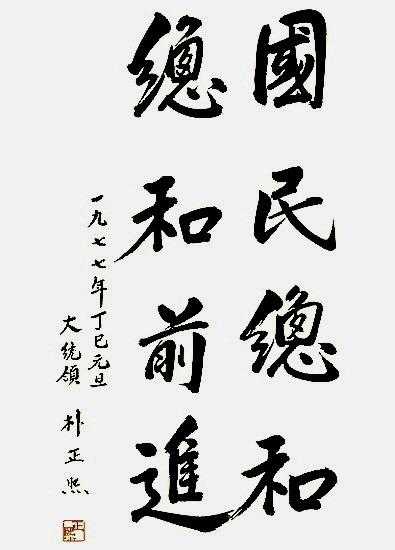 國民總和
總和前進
一九七七年丁巳元旦
大統領 朴正熙